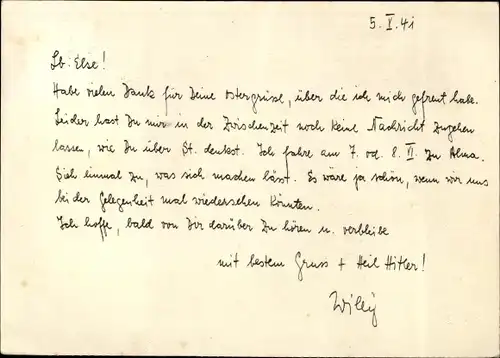 5. V. 41
Lb. Else!
Habe vielen Dank für Deine Ostergrüsse, über die ich mich gefreut habe.
Leider hast Du mir in der Zwischenzeit noch keine Nachricht zugehen
lassen, wie Du über St. denkst. Ich fahre am 7. od. 8. VI. zu Alma.
Sieh einmal zu, was sich machen lässt. Es wäre ja schön, wenn wir uns
bei der Gelegenheit mal wiedersehen könnten.
Ich hoffe, bald von Dir darüber zu hören u. verbleibe
mit bestem Gruss + Heil Hitler!
Willy